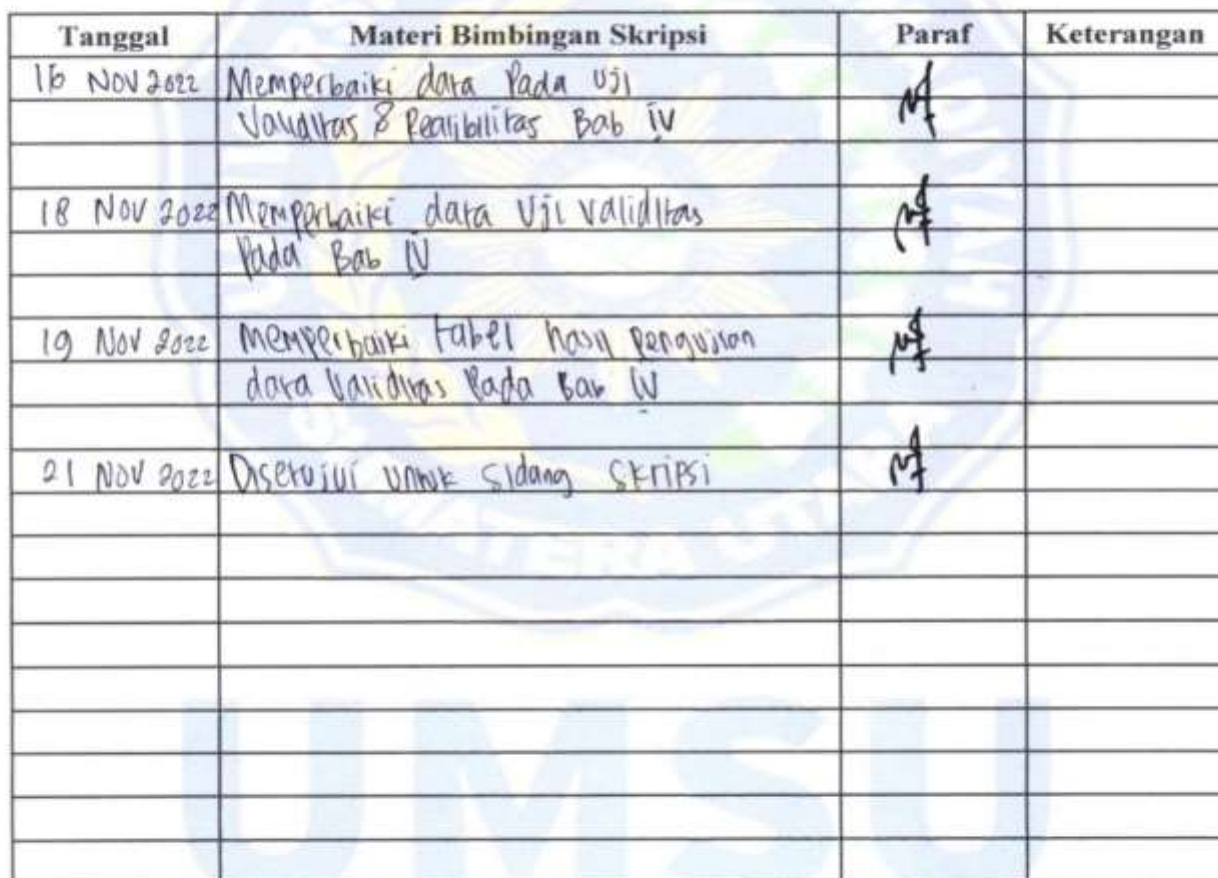 Tanggal Materi Bimbingan Skripsi Paraf Keterangan
16 Nov 2022 Memperbaiki data Pada Uji
Validitas & Realibilitas Bab IV
18 Nov 2022 Memperbaiki data Uji Validitas
Pada Bab IV
19 Nov 2022 Memperbaiki tabel hasil Pengujian
data Validitas Pada Bab IV
21 Nov 2022 Disetujui untuk Sidang Skripsi
SUMATERA UTARA
UMSU